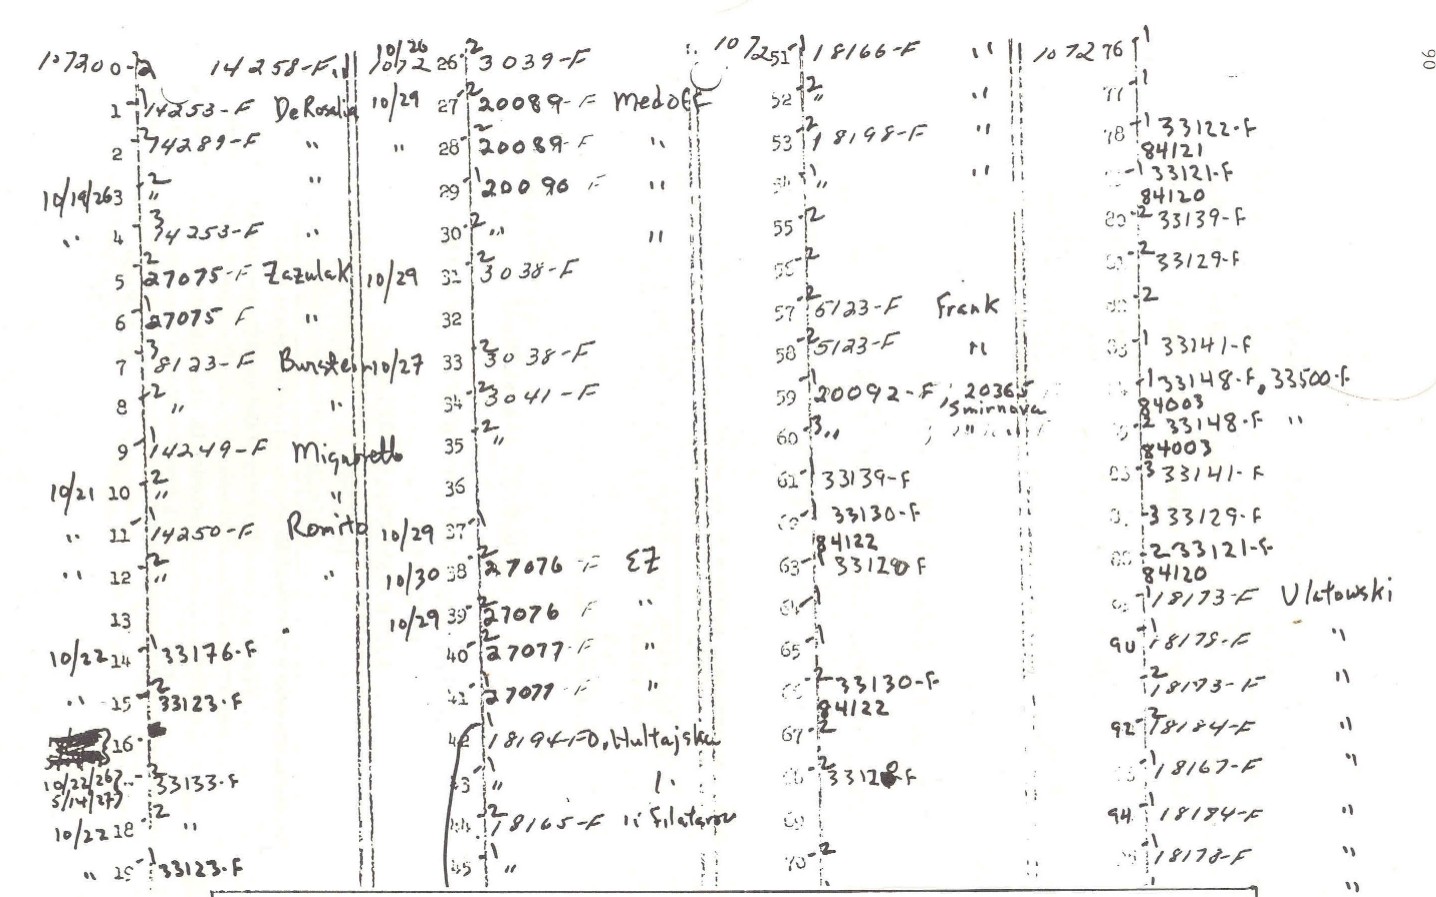 107200-2 14258-F "
1-1 14253-F DeRosalia
2-2 14289-F "
10/19/26 3-2 " "
" 4-3 14253-F "
5-2 27075-F Zazulak
6-1 27075 F "
7-3 8123-F Burstein
8-2 " "
9-1 14249-F
10/21 10-2 " "
" 11-1 14250-F Romito
" 12-2 " "
13
10/22 14-1 33176-F
" 15-2 33123-F
16-
10/22/26 - 2 33133-F
5/14/27
10/22 18-2 "
" 19-1 33123-F
10/26
1072 26-2 3039-F
10/29 27-2 20089-F Medoff
" 28-2 20089-F "
29-1 20090 F "
30-2 " "
10/29 31-2 3038-F
32
10/27 33-2 3038-F
34-2 3041-F
35-2 "
36
10/29 37-1
10/30 38-2 27076-F EZ
10/29 39-2 27076 F "
40-2 27077-F "
41-2 27077-F "
42-1 18194-F O. Hultajska
43-1 " "
44-2 18165-F " Filatarov
45-1 "
107251-1 18166-F "
52-2 " "
53-2 18198-F "
54-1 " "
55-2
56-2
57-2 5123-F Frank
58-2 5123-F "
59-1 20092-F, 20365
Smirnova
60-3 " ; " "
61-1 33139-F
62-1 33130-F
84122
63-1 33128 F
64-1
65-1
66-2 33130-F
84122
67-2
68-2 33128 F
69-1
70-2
107276-1
77-1
78-1 33122-F
84121
-1 33121-F
84120
80-2 33139-F
81-2 33129-F
82-2
83-1 33141-F
84-1 33148-F, 33500-F
84003
85-2 33148-F "
84003
86-3 33141-F
87-3 33129-F
88-2 33121-F
84120
89-1 18173-F Ulatowski
90-1 18175-F "
-2 18173-F "
92-2 18184-F "
93-1 18167-F "
94-1 18184-F "
95-1 18178-F "
"
90